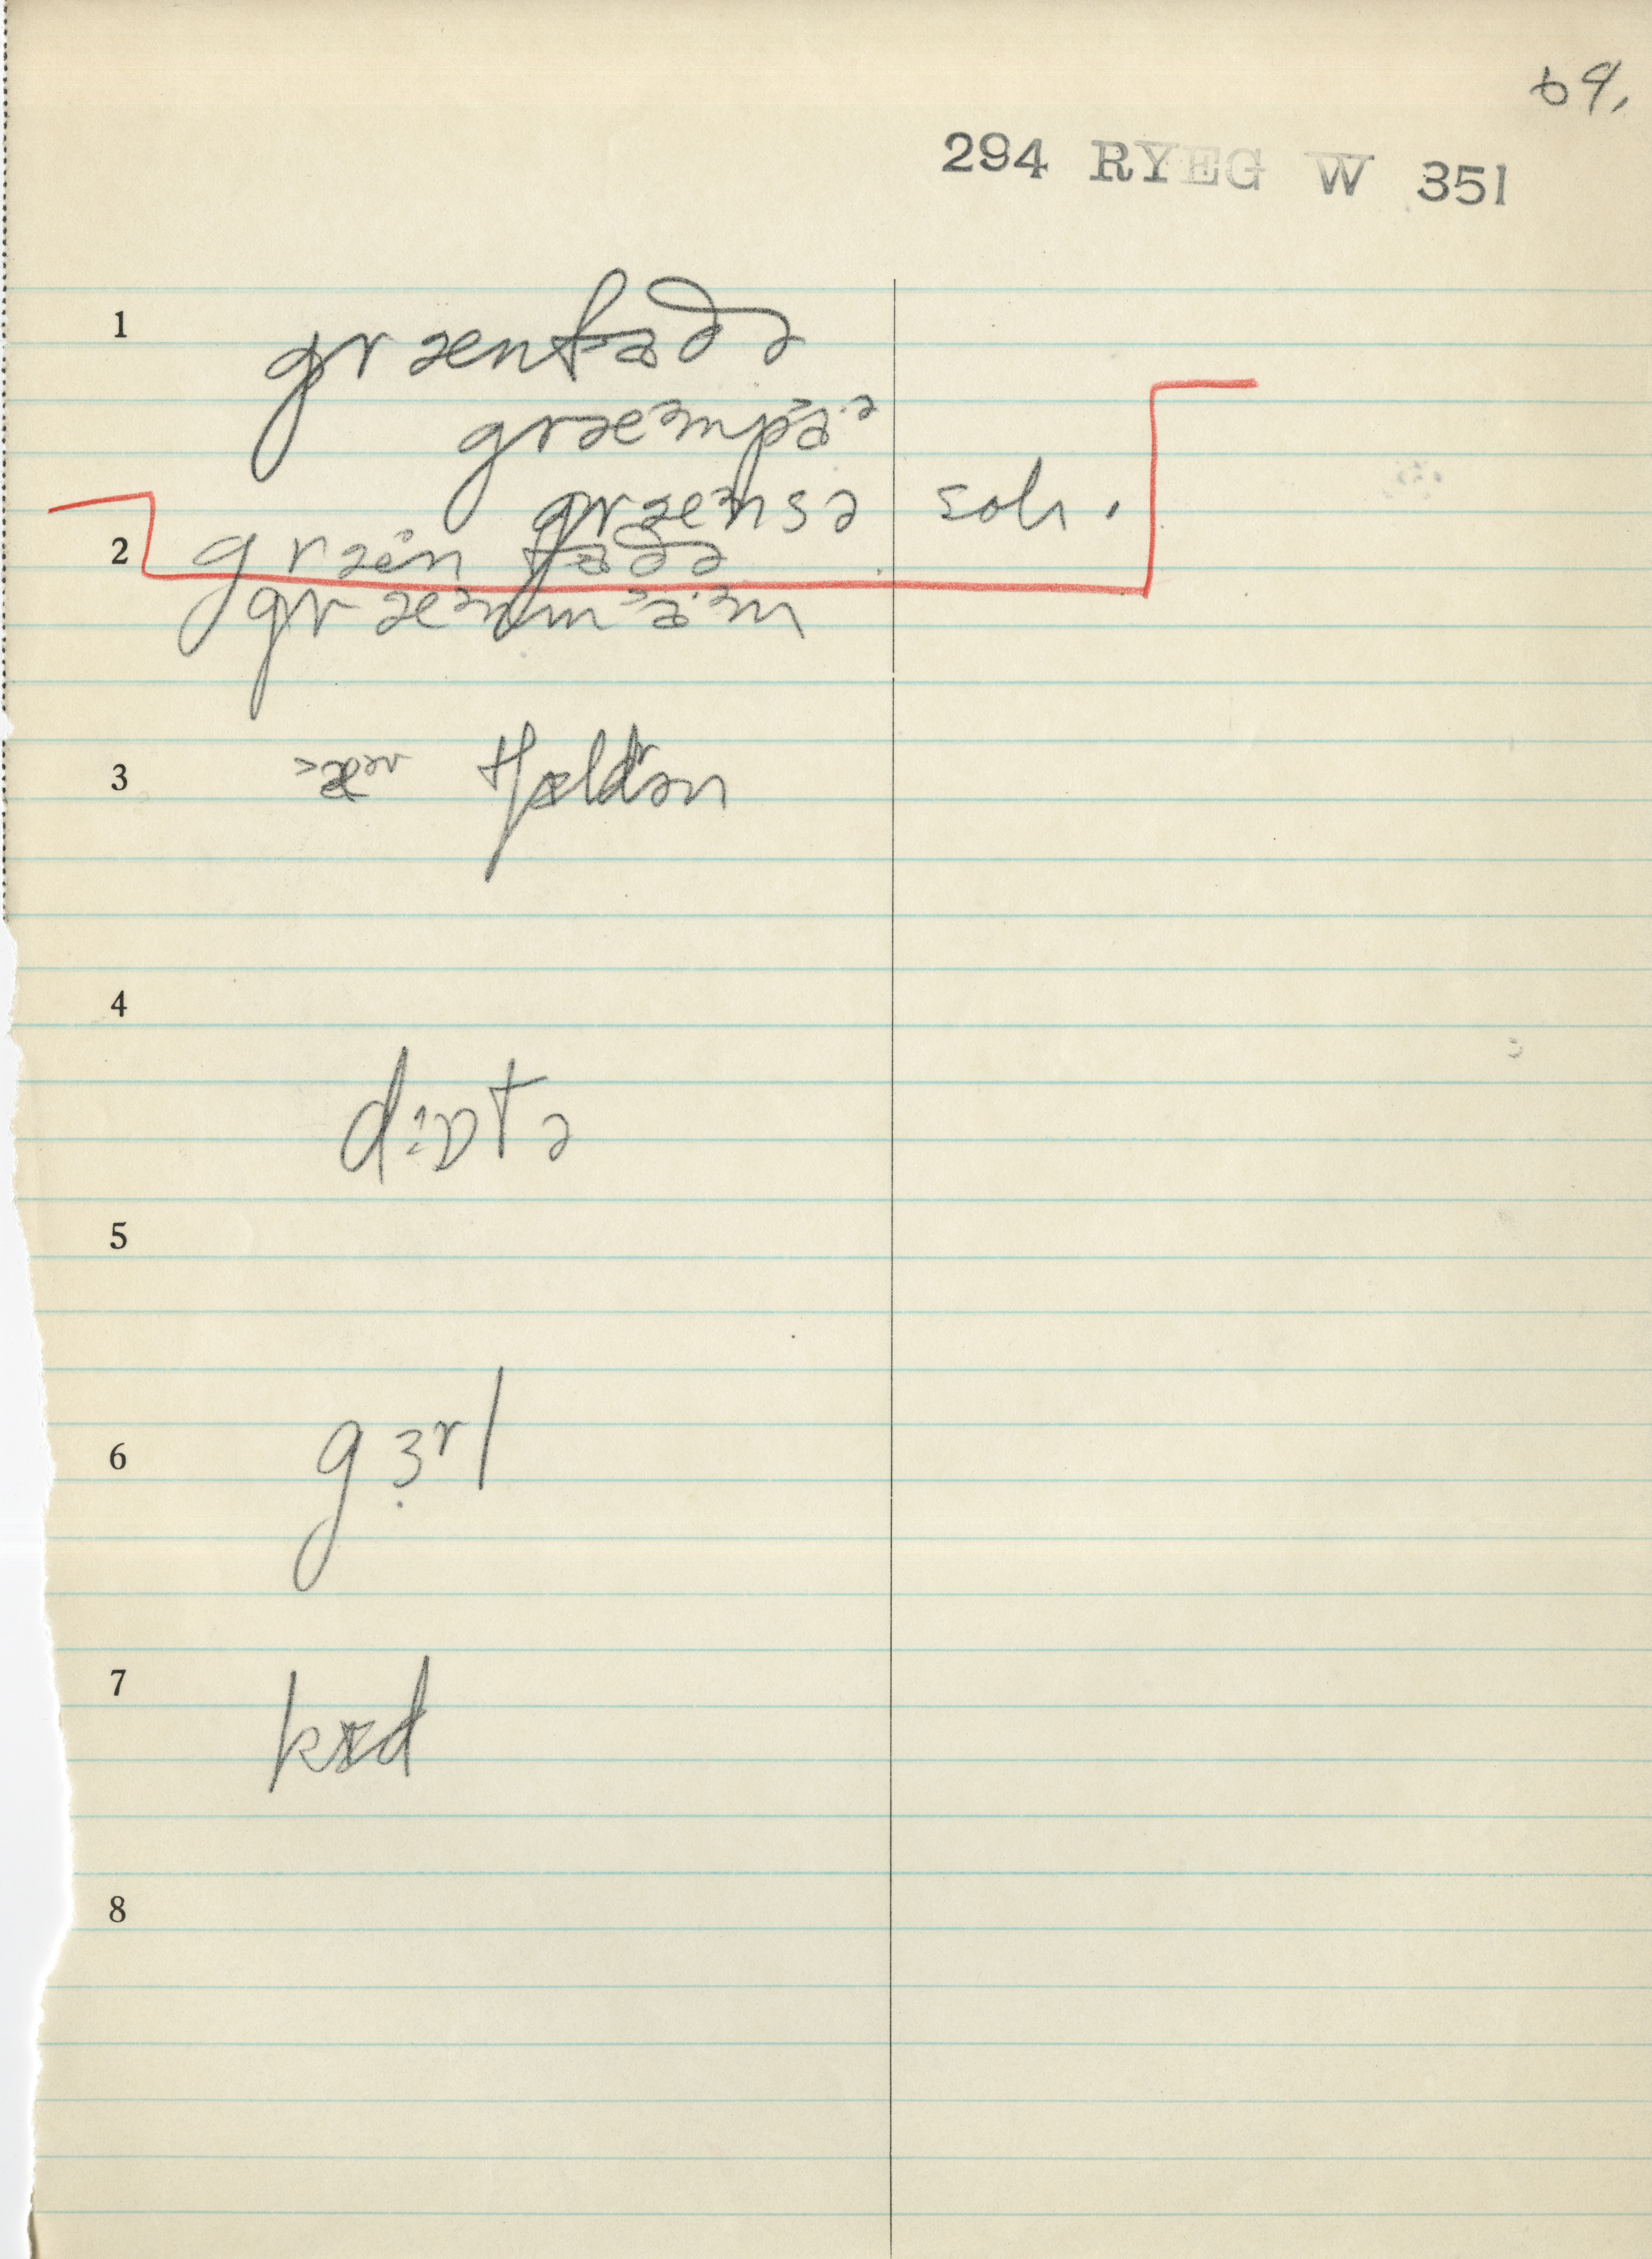 69.
294 RYEG W 351
1 grænfɑðə
græᵊmpɑ·ᵊ
græᵊnsə soh.
2 græin fɑðə
græᵊnmɑ·ᵊm
3 tʃɪldrən
4
dɔɒtə
5
6 gɜʳl
7 kɪd
8